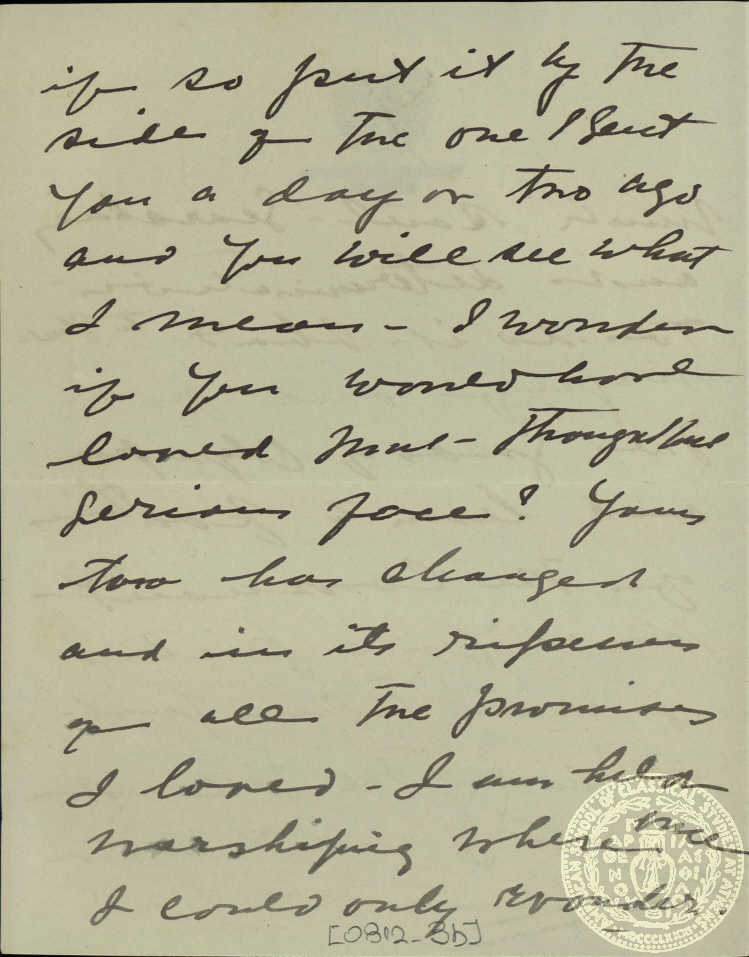 if so put it by the
side of the one I sent
you a day or two ago
and you will see what
I mean - I wonder
if you would have
loved that - thoughtful
serious face? Yours
too has changed
and in its ripeness
of all the promises
I loved - I am
worshiping where once
I could only wonder.
[0812-3b]